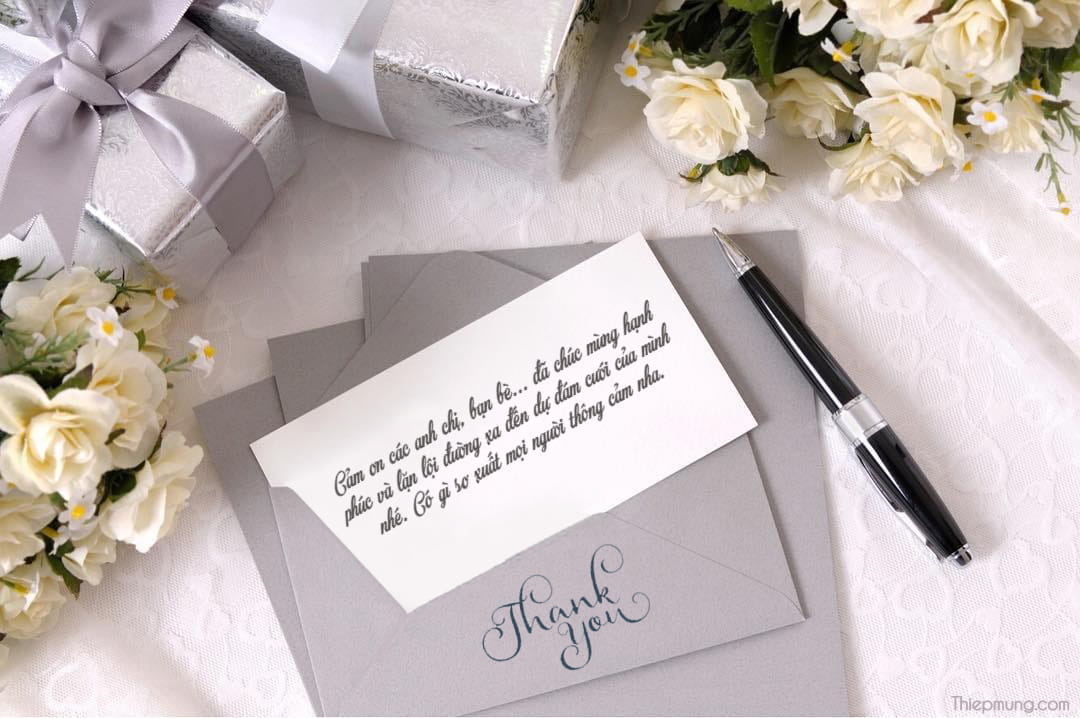 Cảm ơn các anh chị, bạn bè... đã chúc mừng hạnh
phúc và lặn lội đường xa đến dự đám cưới của mình
nhé. Có gì sơ xuất mọi người thông cảm nha.
Thank
You
Thiepmung.com